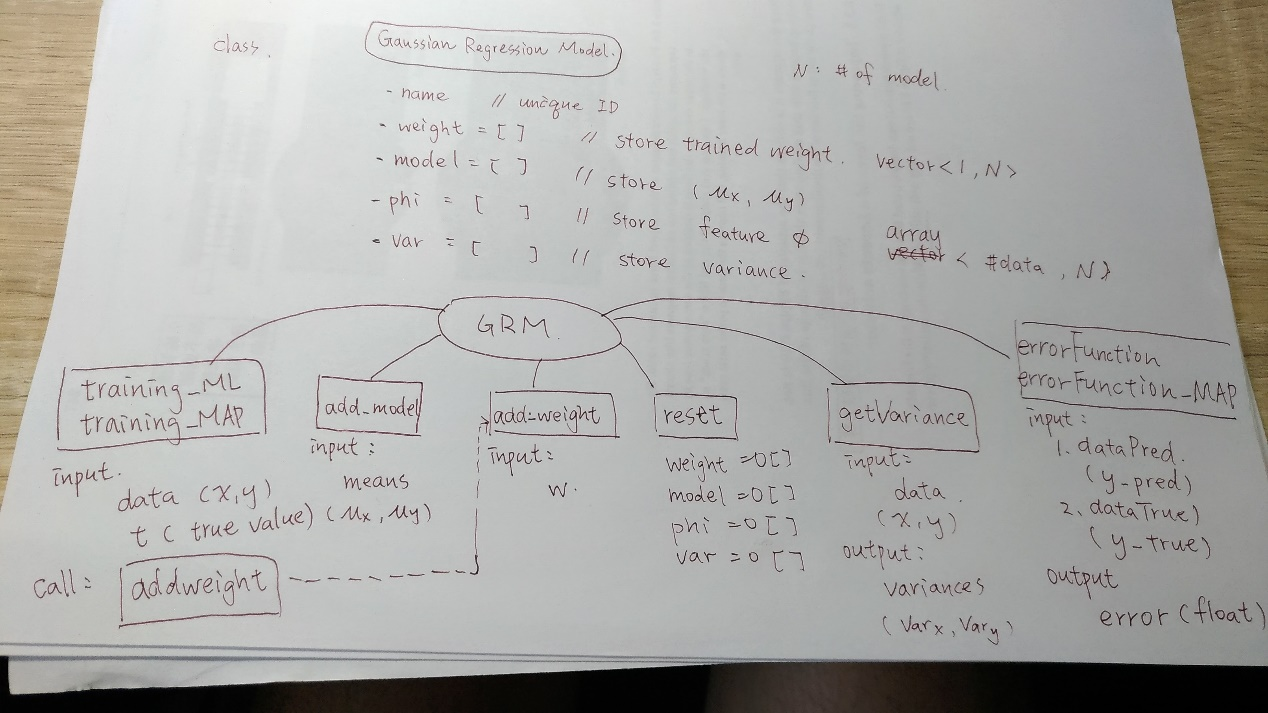 class.
Gaussian Regression Model.
N : # of model.
- name // unique ID
- weight = [ ] // store trained weight. vector<1, N>
- model = [ ] // store (μx, μy)
- phi = [ ] // store feature ϕ
- var = [ ] // store variance.
array
vector < #data , N}
GRM.
training_ML
training_MAP
input.
data (x,y)
t ( true value)
call:
addweight
add_model
input :
means
(μx, μy)
add-weight
input:
w.
reset
weight =0[]
model =0[]
phi =0[]
var =0 []
getVariance
input:
data.
(x,y)
output:
variances
(Varx, Vary)
errorFunction
errorFunction_MAP
input:
1. dataPred.
(y-pred)
2. dataTrue)
(y-true)
output
error (float)